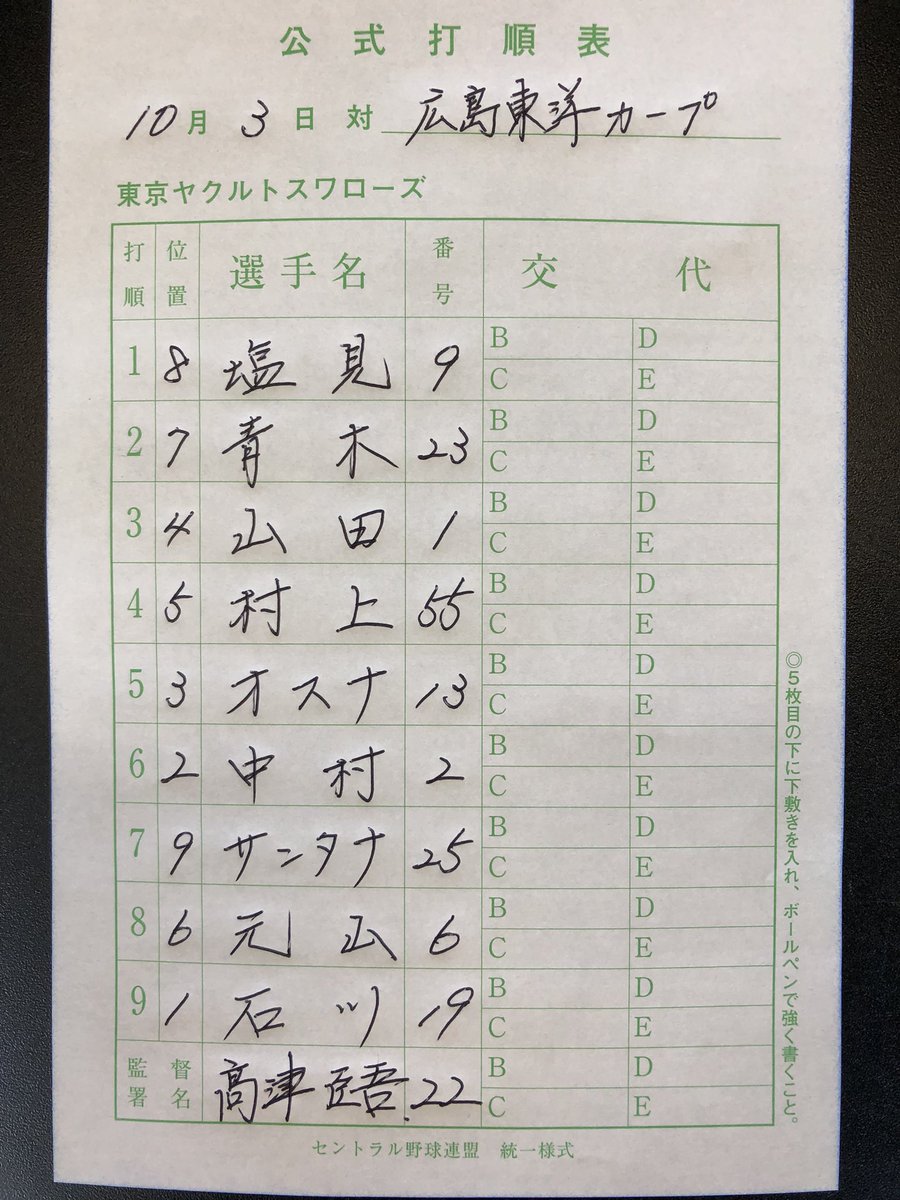 公式打順表
10月3日 対 広島東洋カープ
東京ヤクルトスワローズ
打順 位置 選手名 番号 交代
1 8 塩見 9 B D
C E
2 7 青木 23 B D
C E
3 4 山田 1 B D
C E
4 5 村上 55 B D
C E
5 3 オスナ 13 B D
C E
6 2 中村 2 B D
C E
7 9 サンタナ 25 B D
C E
8 6 元山 6 B D
C E
9 1 石川 19 B D
C E
監督署名 高津臣吾 22 B D
C E
◎5枚目の下に下敷きを入れ、ボールペンで強く書くこと。
セントラル野球連盟 統一様式